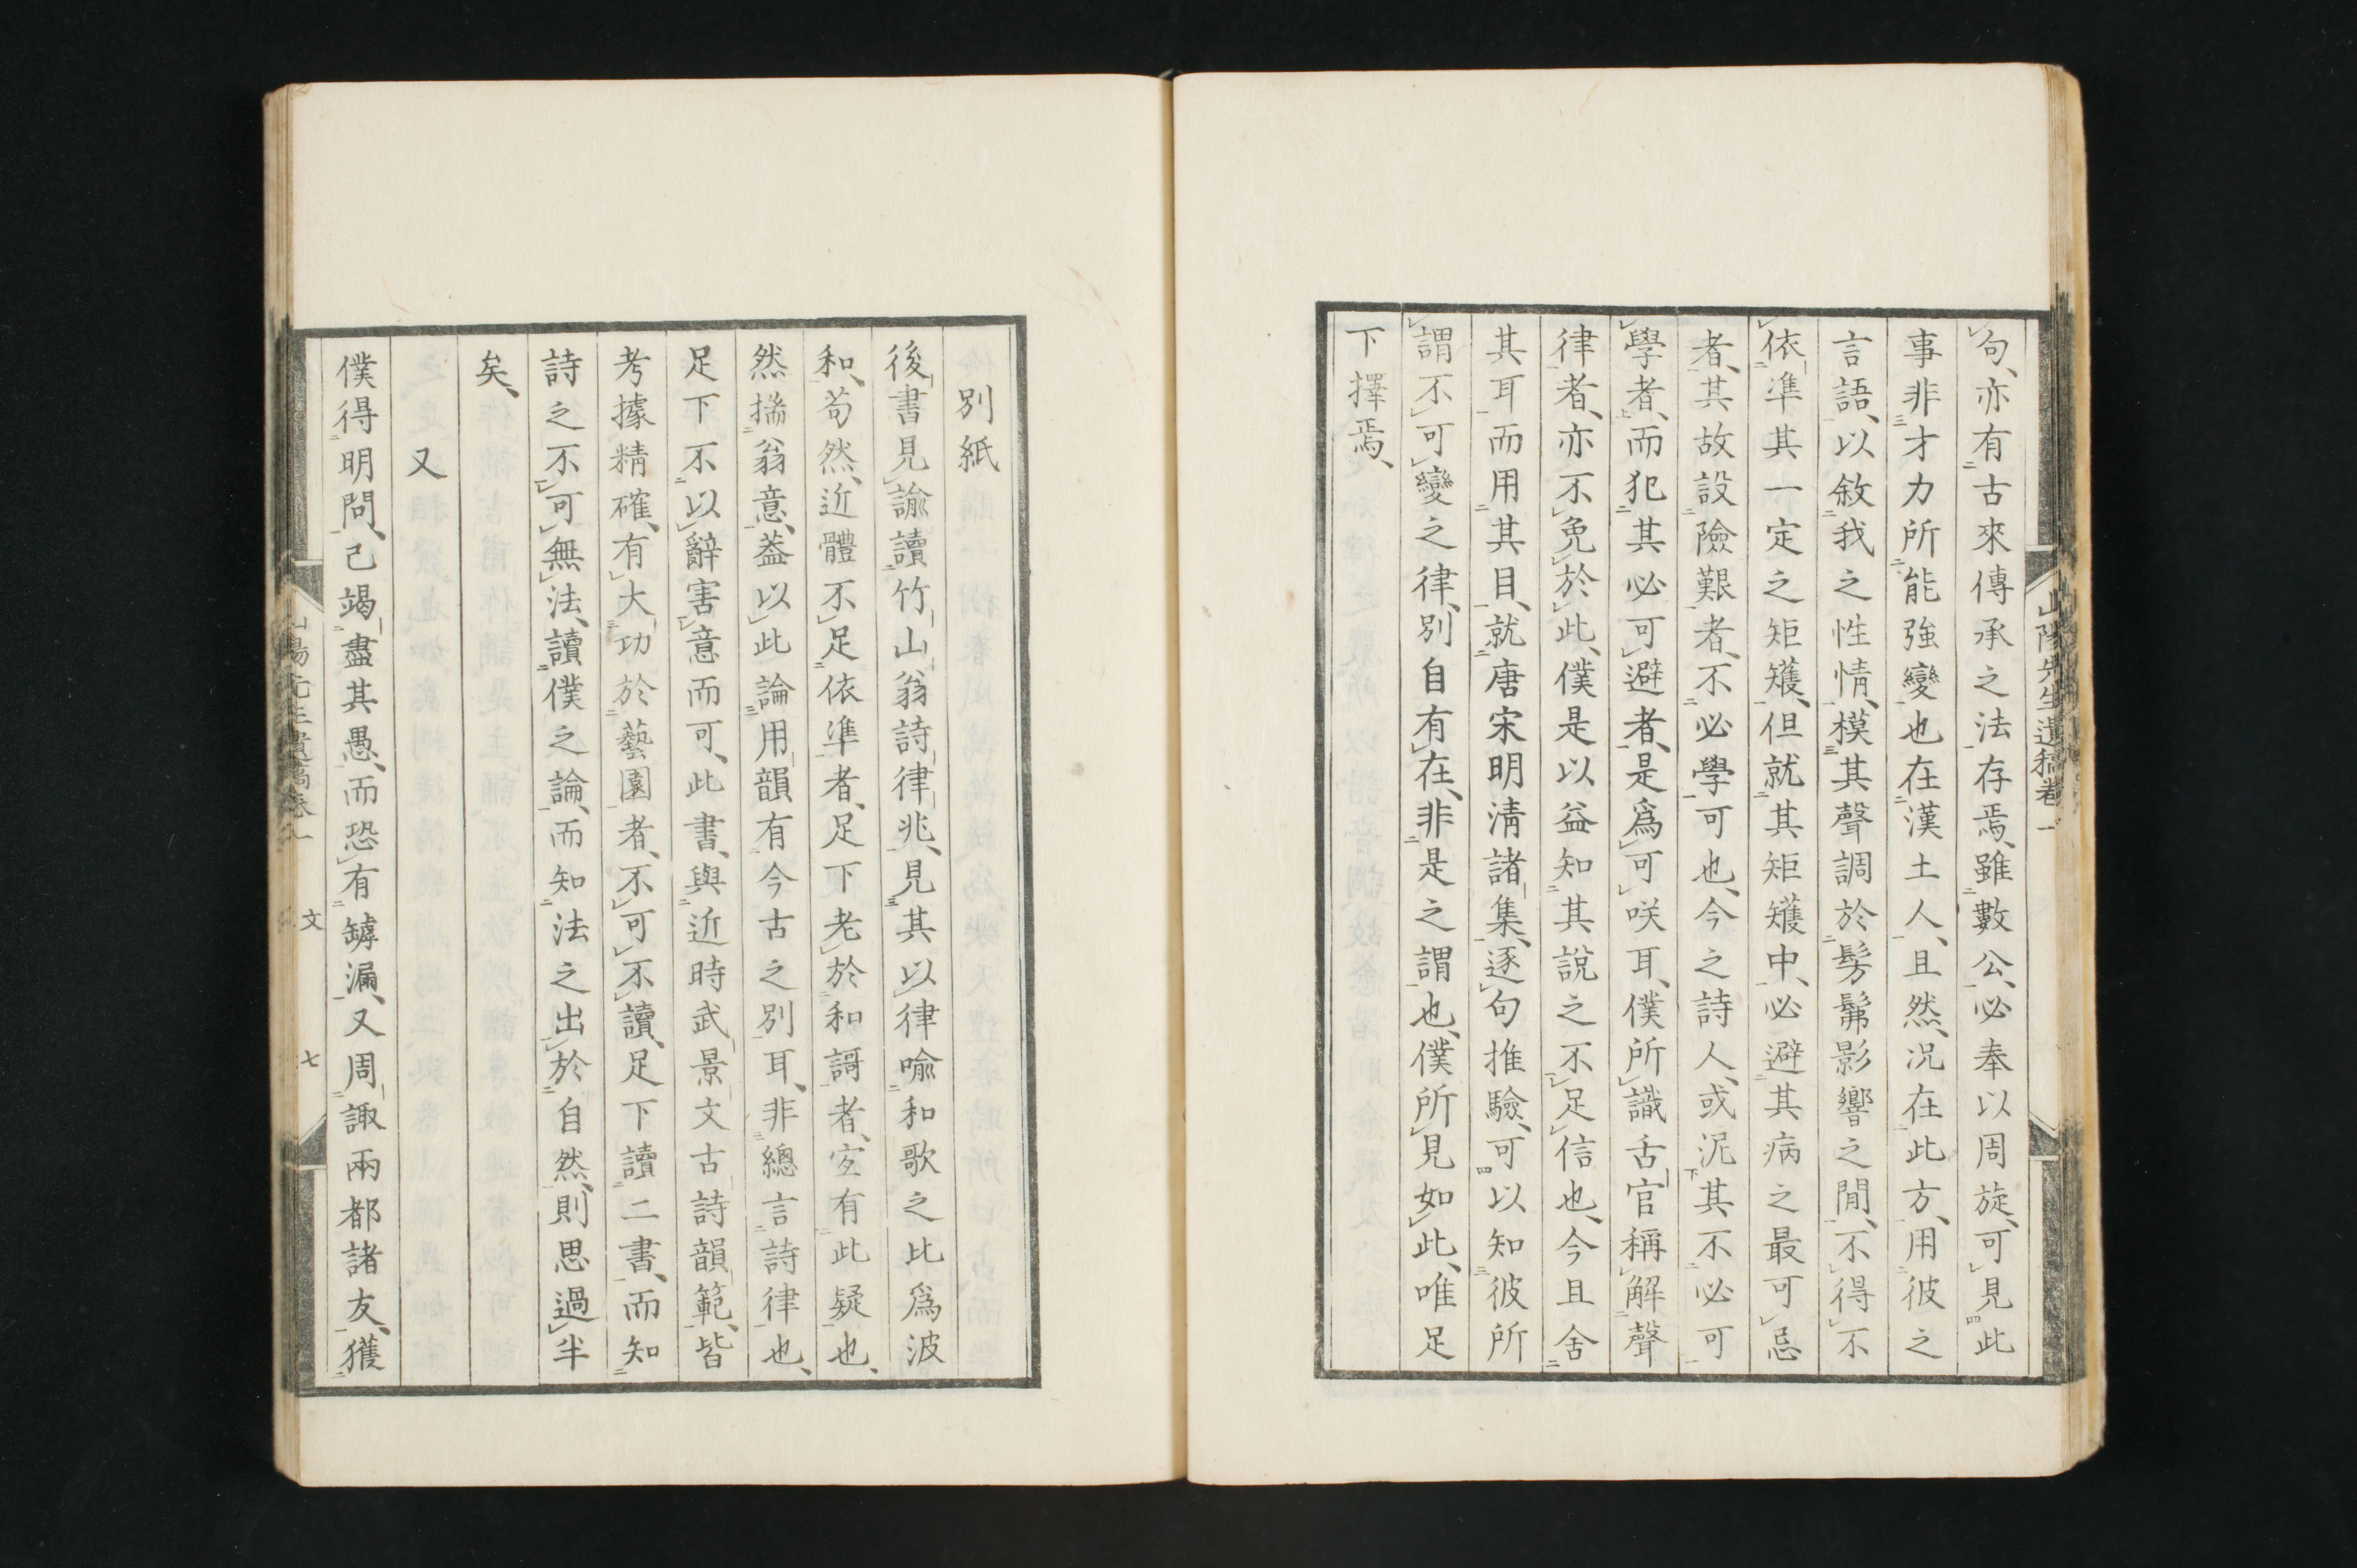 山陽先生遺稿卷一
句、亦有古來傳承之法存焉、雖數公、必奉以周旋、可見此
事非才力所能強變也在漢土人、且然、況在此方、用彼之
言語、以敘我之性情、模其聲調於髣髴影響之間、不得不
依準其一定之矩矱、但就其矩矱中、必避其病之最可忌
者、其故設險艱者、不必學可也、今之詩人、或泥其不必可
學者、而犯其必可避者、是爲可咲耳、僕所識舌官稱解聲
律者、亦不免於此、僕是以益知其說之不足信也、今且舍
其耳而用其目、就唐宋明淸諸集、逐句推驗、可以知彼所
謂不可變之律、別自有在、非是之謂也、僕所見如此、唯足
下擇焉、
別紙
後書見諭讀竹山翁詩律兆、見其以律喩和歌之比爲波
和、苟然、近體不足依準者、足下老於和謌者、宐有此疑也、
然揣翁意、葢以此論用韻有今古之別耳、非總言詩律也、
足下不以辭害意而可、此書、與近時武景文古詩韻範、皆
考據精確、有大功於藝園者、不可不讀、足下讀二書、而知
詩之不可無法、讀僕之論、而知法之出於自然、則思過半
矣、
又
僕得明問、已竭盡其愚、而恐有罅漏、又周諏兩都諸友、獲
山陽先生遺稿卷一 文 七